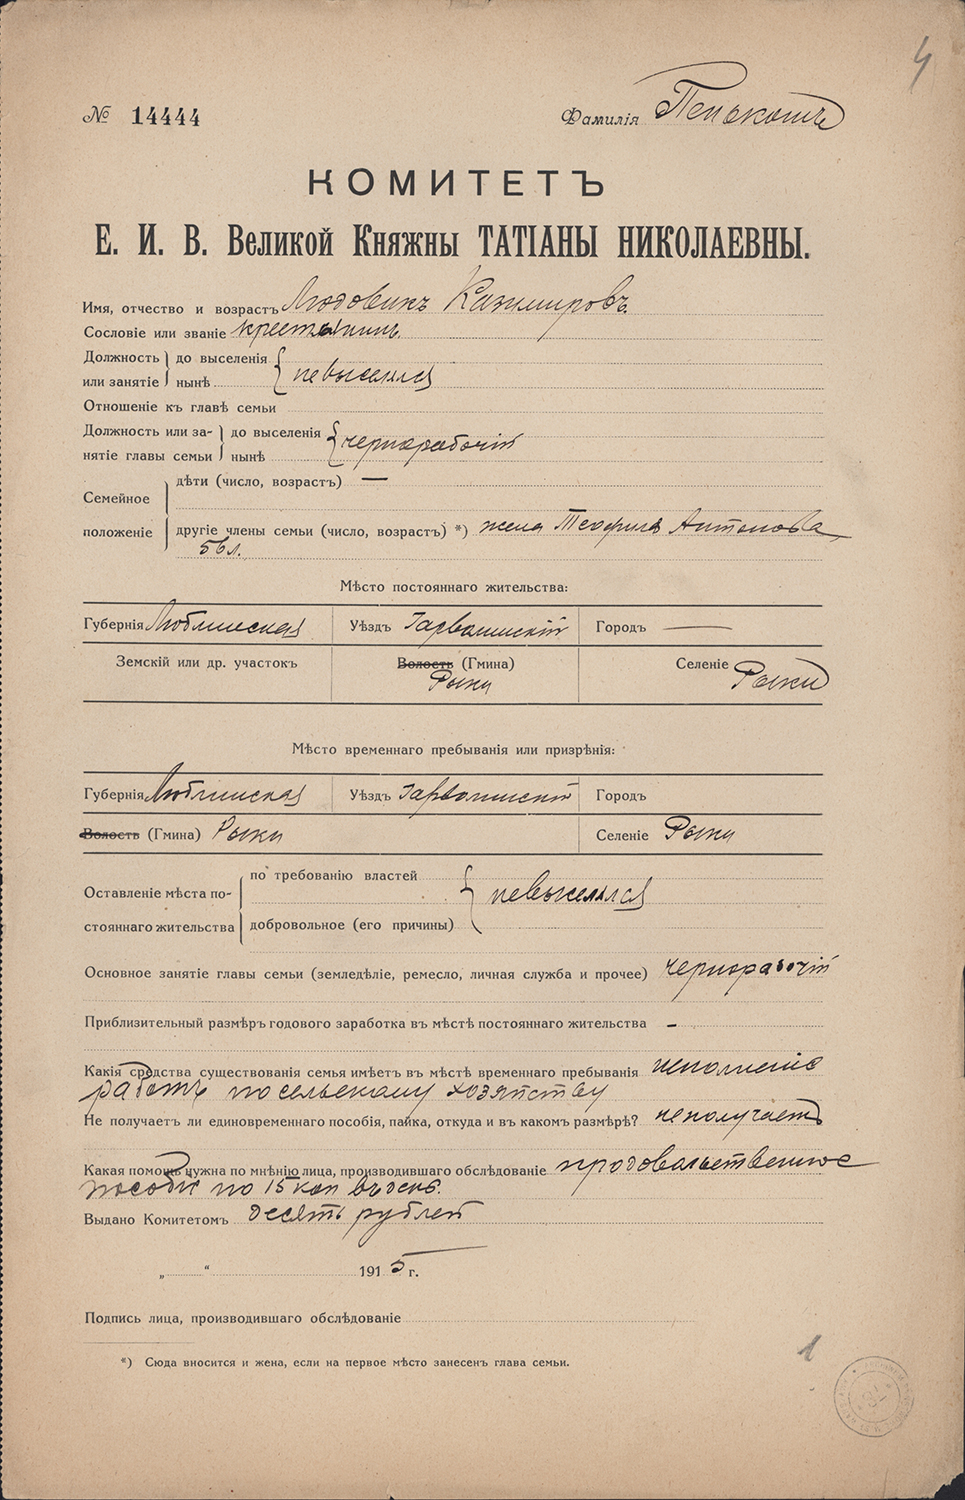 4
№ 14444
Фамилія Пенькошъ
КОМИТЕТЪ
Е. И. В. Великой Княжны ТАТІАНЫ НИКОЛАЕВНЫ.
Имя, отчество и возрастъ Людовикъ Казимировъ
Сословіе или званіе крестьянинъ.
Должность или занятіе до выселенія
нынѣ невыселялся
Отношеніе къ главѣ семьи
Должность или занятіе главы семьи до выселенія
нынѣ чернорабочій
Семейное положеніе дѣти (число, возрастъ) —
другіе члены семьи (число, возрастъ) *) жена Теофила Антонова
56 л.
Мѣсто постояннаго жительства:
Губернія Люблинская Уѣздъ Гарволинскій Городъ —
Земскій или др. участокъ Волость (Гмина) Рыки Селеніе Рыки
Мѣсто временнаго пребыванія или призрѣнія:
Губернія Люблинская Уѣздъ Гарволинскій Городъ
Волость (Гмина) Рыки Селеніе Рыки
Оставленіе мѣста постояннаго жительства по требованію властей
невыселялся
добровольное (его причины)
Основное занятіе главы семьи (земледѣліе, ремесло, личная служба и прочее) чернорабочій
Приблизительный размѣръ годового заработка въ мѣстѣ постояннаго жительства —
Какія средства существованія семья имѣетъ въ мѣстѣ временнаго пребыванія исполненіе
работъ по сельскому хозяйству
Не получаетъ ли единовременнаго пособія, пайка, откуда и въ какомъ размѣрѣ? неполучаетъ
Какая помощь нужна по мнѣнію лица, производившаго обслѣдованіе продовольственное
пособіе по 15 коп въ день.
Выдано Комитетомъ десять рублей
„ “ 1915 г.
Подпись лица, производившаго обслѣдованіе
*) Сюда вносится и жена, если на первое мѣсто занесенъ глава семьи.
1